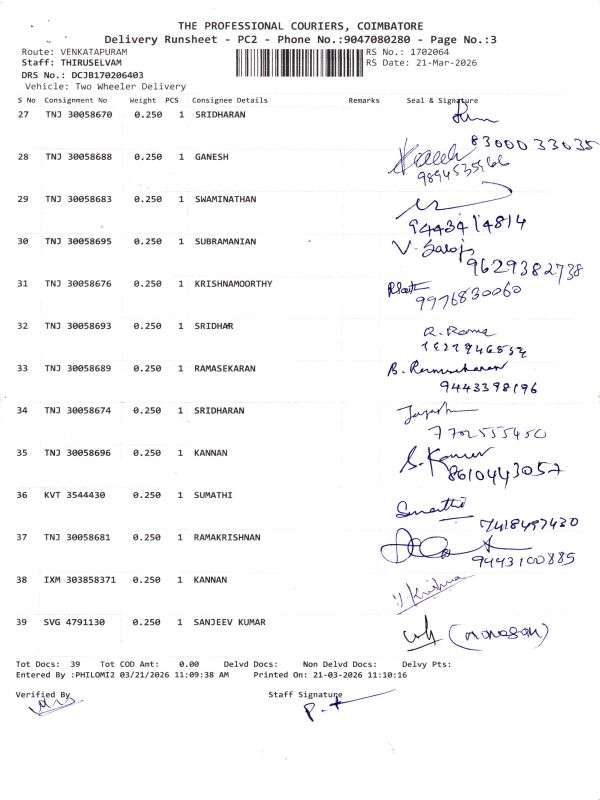 THE PROFESSIONAL COURIERS, COIMBATORE
Delivery Runsheet - PC2 - Phone No.:9047080280 - Page No.:3
Route: VENKATAPURAM RS No.: 1702064
Staff: THIRUSELVAM RS Date: 21-Mar-2026
DRS No.: DCJB170206403
Vehicle: Two Wheeler Delivery
S No Consignment No Weight PCS Consignee Details Remarks Seal & Signature
27 TNJ 30058670 0.250 1 SRIDHARAN
8300033035
28 TNJ 30058688 0.250 1 GANESH
9894535966
29 TNJ 30058683 0.250 1 SWAMINATHAN
9443414814
30 TNJ 30058695 0.250 1 SUBRAMANIAN V. Saroj
9629382738
31 TNJ 30058676 0.250 1 KRISHNAMOORTHY
9976830060
32 TNJ 30058693 0.250 1 SRIDHAR R. Rama
33 TNJ 30058689 0.250 1 RAMASEKARAN B. Ramasekaran
9443398196
34 TNJ 30058674 0.250 1 SRIDHARAN
7702555450
35 TNJ 30058696 0.250 1 KANNAN S. Kannan
8610443057
36 KVT 3544430 0.250 1 SUMATHI Sumathi
7418497430
37 TNJ 30058681 0.250 1 RAMAKRISHNAN
9443100885
38 IXM 303858371 0.250 1 KANNAN V. Krishna
39 SVG 4791130 0.250 1 SANJEEV KUMAR
Tot Docs: 39 Tot COD Amt: 0.00 Delvd Docs: Non Delvd Docs: Delvy Pts:
Entered By :PHILOMI2 03/21/2026 11:09:38 AM Printed On: 21-03-2026 11:10:16
Verified By Staff Signature